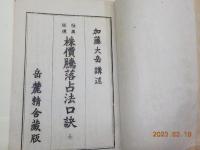 加藤大岳講述
株價騰落占法口訣 全
岳麓精舍藏版
2023/02/10